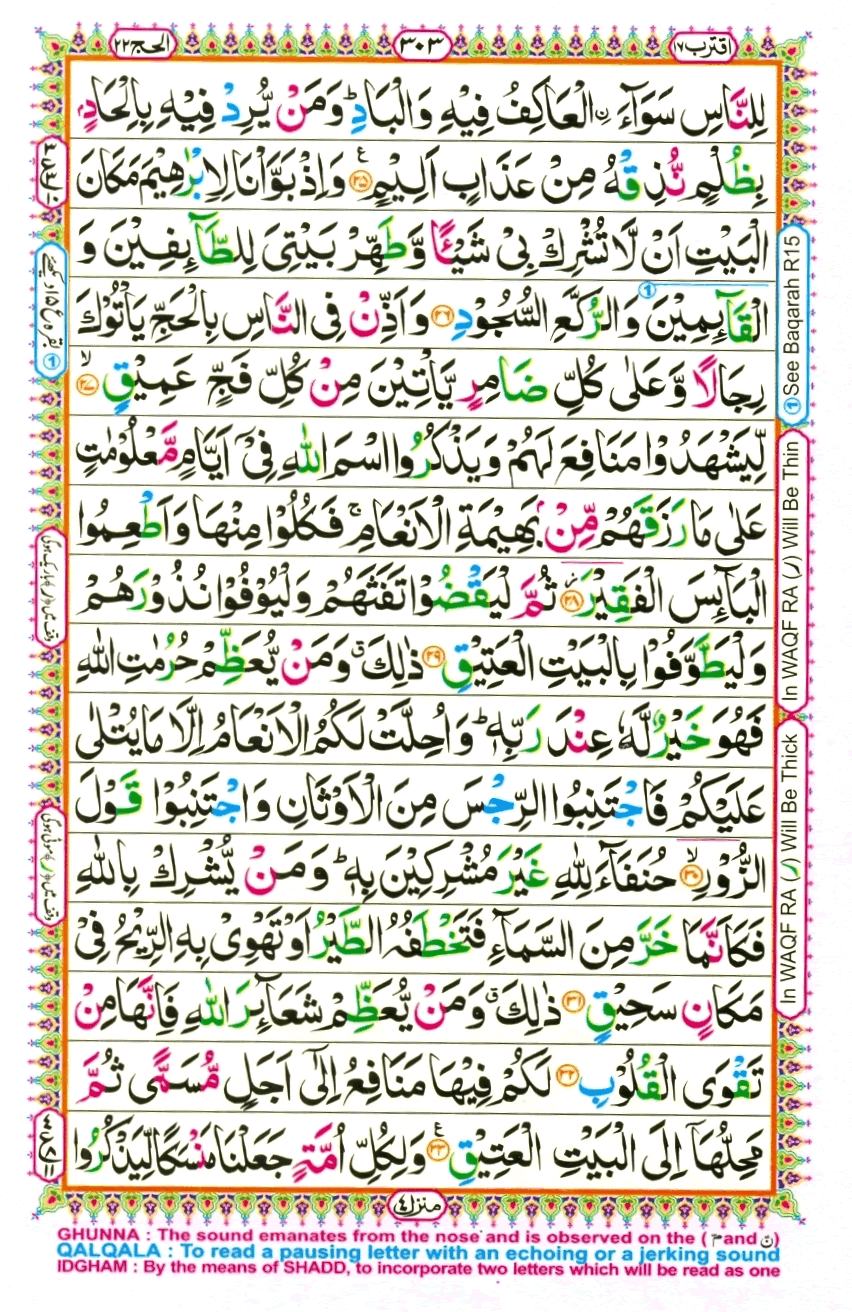 اقترب ١٧
٣٠٣
الحج ٢٢
لِلنَّاسِ سَوَآءَ ۨالْعَاكِفُ فِيْهِ وَالْبَادِ ؕ وَمَنْ يُّرِدْ فِيْهِ بِاِلْحَادٍۭ
بِظُلْمٍ نُّذِقْهُ مِنْ عَذَابٍ اَلِيْمٍ ﴿٢٥﴾ ع وَاِذْ بَوَّاْنَا لِاِبْرٰهِيْمَ مَكَانَ
الْبَيْتِ اَنْ لَّا تُشْرِكْ بِىْ شَيْـًٔا وَّطَهِّرْ بَيْتِىَ لِلطَّآئِفِيْنَ وَ
الْقَآئِمِيْنَ وَالرُّكَّعِ السُّجُوْدِ ﴿٢٦﴾ وَاَذِّنْ فِى النَّاسِ بِالْحَجِّ يَاْتُوْكَ
رِجَالًا وَّعَلٰى كُلِّ ضَامِرٍ يَّاْتِيْنَ مِنْ كُلِّ فَجٍّ عَمِيْقٍ ۙ﴿٢٧﴾
لِّيَشْهَدُوْا مَنَافِعَ لَهُمْ وَيَذْكُرُوا اسْمَ اللّٰهِ فِىْٓ اَيَّامٍ مَّعْلُوْمٰتٍ
عَلٰى مَا رَزَقَهُمْ مِّنْۢ بَهِيْمَةِ الْاَنْعَامِ ۚ فَكُلُوْا مِنْهَا وَاَطْعِمُوا
الْبَآئِسَ الْفَقِيْرَ ﴿٢٨﴾ ثُمَّ لْيَقْضُوْا تَفَثَهُمْ وَلْيُوْفُوْا نُذُوْرَهُمْ
وَلْيَطَّوَّفُوْا بِالْبَيْتِ الْعَتِيْقِ ﴿٢٩﴾ ذٰلِكَ ۗ وَمَنْ يُّعَظِّمْ حُرُمٰتِ اللّٰهِ
فَهُوَ خَيْرٌ لَّهٗ عِنْدَ رَبِّهٖ ؕ وَاُحِلَّتْ لَكُمُ الْاَنْعَامُ اِلَّا مَا يُتْلٰى
عَلَيْكُمْ فَاجْتَنِبُوا الرِّجْسَ مِنَ الْاَوْثَانِ وَاجْتَنِبُوْا قَوْلَ
الزُّوْرِ ۙ﴿٣٠﴾ حُنَفَآءَ لِلّٰهِ غَيْرَ مُشْرِكِيْنَ بِهٖ ؕ وَمَنْ يُّشْرِكْ بِاللّٰهِ
فَكَاَنَّمَا خَرَّ مِنَ السَّمَآءِ فَتَخْطَفُهُ الطَّيْرُ اَوْ تَهْوِىْ بِهِ الرِّيْحُ فِىْ
مَكَانٍ سَحِيْقٍ ﴿٣١﴾ ذٰلِكَ ۗ وَمَنْ يُّعَظِّمْ شَعَآئِرَ اللّٰهِ فَاِنَّهَا مِنْ
تَقْوَى الْقُلُوْبِ ﴿٣٢﴾ لَكُمْ فِيْهَا مَنَافِعُ اِلٰٓى اَجَلٍ مُّسَمًّى ثُمَّ
مَحِلُّهَآ اِلَى الْبَيْتِ الْعَتِيْقِ ﴿٣٣﴾ ع وَلِكُلِّ اُمَّةٍ جَعَلْنَا مَنْسَكًا لِّيَذْكُرُوا
منزل ٤
① See Baqarah R15
In WAQF RA (ر) Will Be Thin
In WAQF RA (ر) Will Be Thick
① بقرہ ع ۱۵ دیکھئے
وقف میں (ر) باریک ہوگی
وقف میں (ر) موٹی ہوگی
GHUNNA : The sound emanates from the nose and is observed on the ( مّ and نّ )
QALQALA : To read a pausing letter with an echoing or a jerking sound
IDGHAM : By the means of SHADD, to incorporate two letters which will be read as one